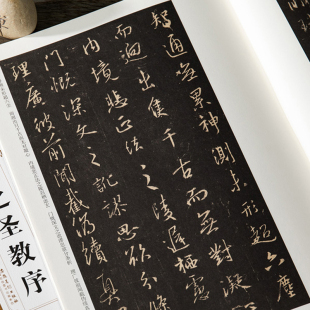 智通無累神測未形超六塵
而迥出隻千古而無對凝
内境悲正法之陵遲栖慮
門慨深文之訛謬思欲分條
理廣彼前聞截偽續真
圣教序